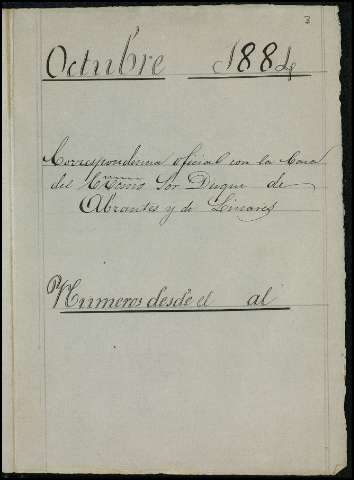 3
Octubre 1884
Correspondencia oficial con la Casa
del Excmo Sor Duque de
Abrantes y de Linares
Numeros desde el al